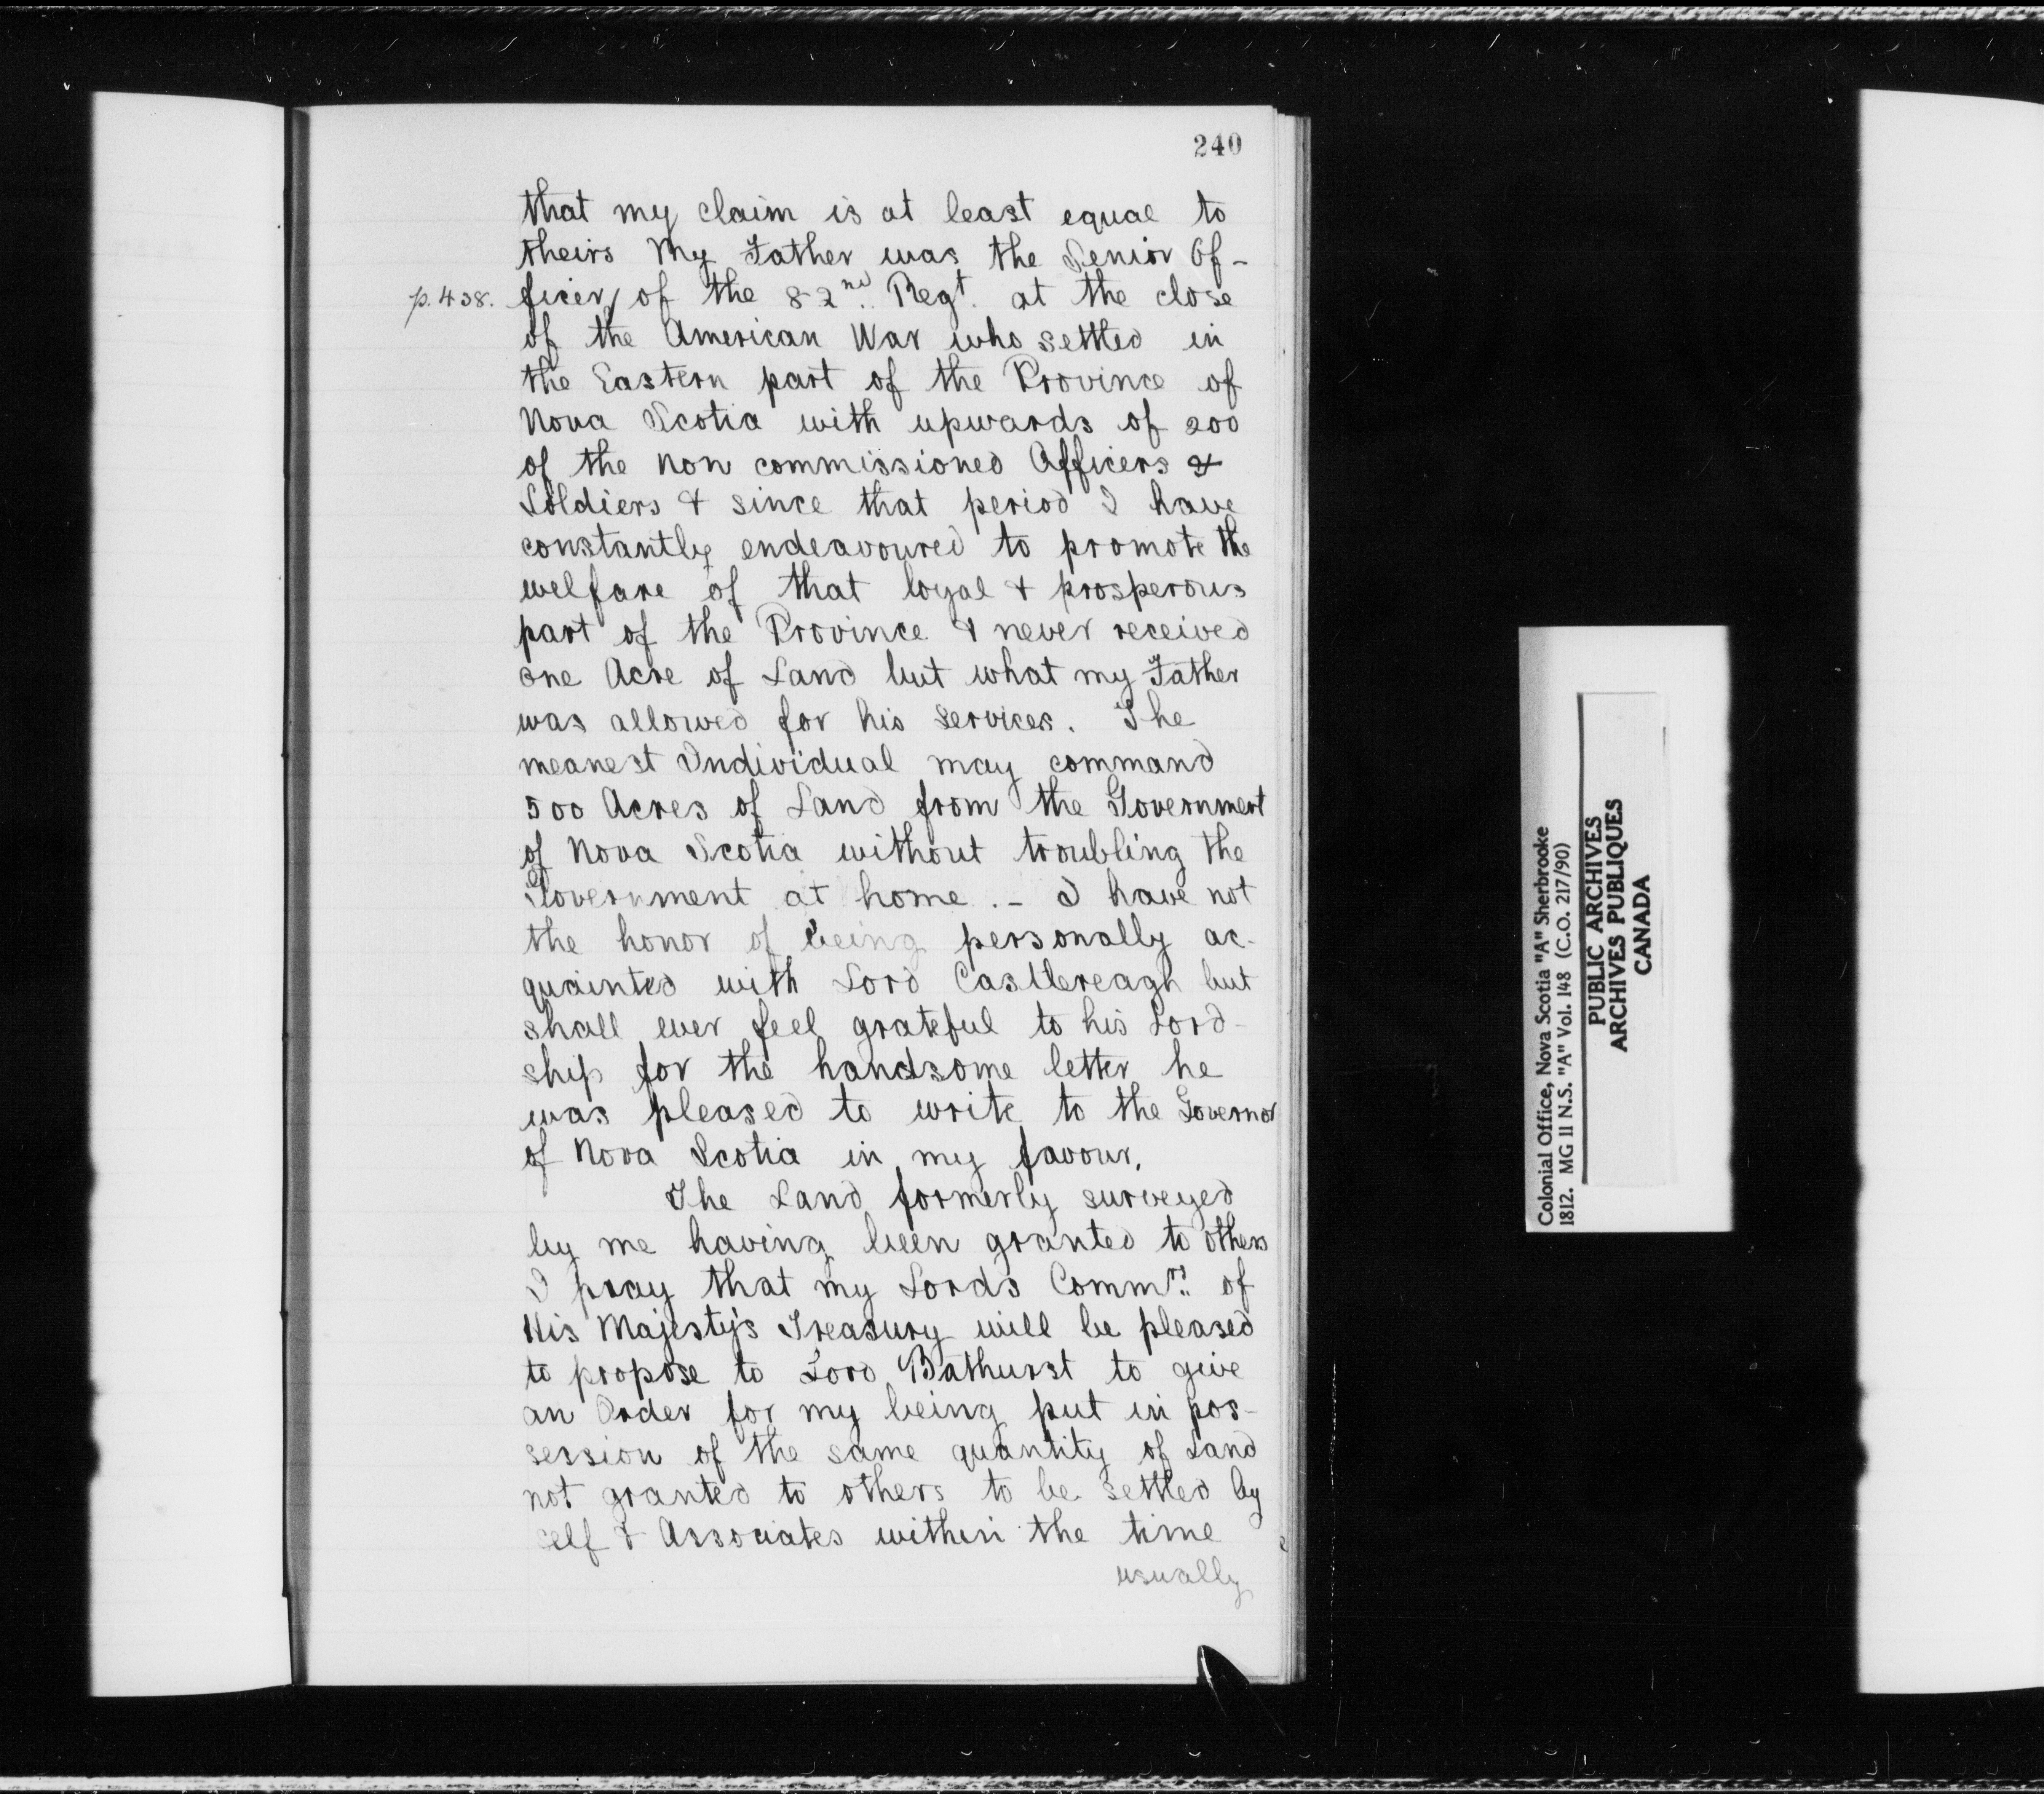 240
that my claim is at least equal to
theirs My Father was the Senior Of-
p. 438. ficer/ of the 82nd. Regt. at the close
of the American War who settled in
the Eastern part of the Province of
Nova Scotia with upwards of 200
of the non commissioned Officers &
Soldiers & since that period I have
constantly endeavoured to promote the
welfare of that loyal & prosperous
part of the Province & never received
one Acre of Land but what my Father
was allowed for his services. The
meanest Individual may command
500 Acres of Land from the Government
of Nova Scotia without troubling the
Government at home. - I have not
the honor of being personally ac-
quainted with Lord Castlereagh but
shall ever feel grateful to his Lord-
ship for the handsome letter he
was pleased to write to the Governor
of Nova Scotia in my favour.
The Land formerly surveyed
by me having been granted to others
I pray that my Lords Commrs. of
His Majesty's Treasury will be pleased
to propose to Lord Bathurst to give
an Order for my being put in pos-
session of the same quantity of Land
not granted to others to be settled by
self & Associates within the time
usually
Colonial Office, Nova Scotia "A" Sherbrooke
1812. MG 11 N.S. "A" Vol. 148 (C.O. 217/90)
PUBLIC ARCHIVES
ARCHIVES PUBLIQUES
CANADA